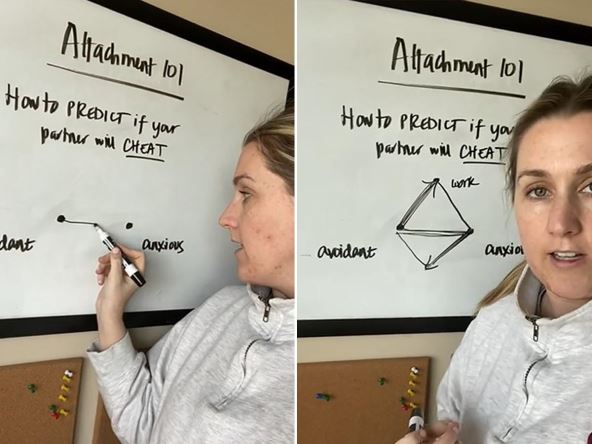 Attachment 101
How to PREDICT if your
partner will CHEAT
dant
anxious
Attachment 101
How to PREDICT if you
partner will CHEAT
work
avoidant
anxiou